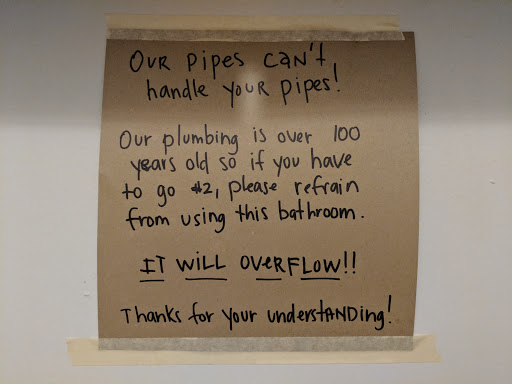 OUR PIPES CAN't
handle YOUR pipes!
Our plumbing is over 100
years old so if you have
to go #2, please refrain
from using this bathroom.
IT WILL OVERFLOW!!
Thanks for your understANDing!